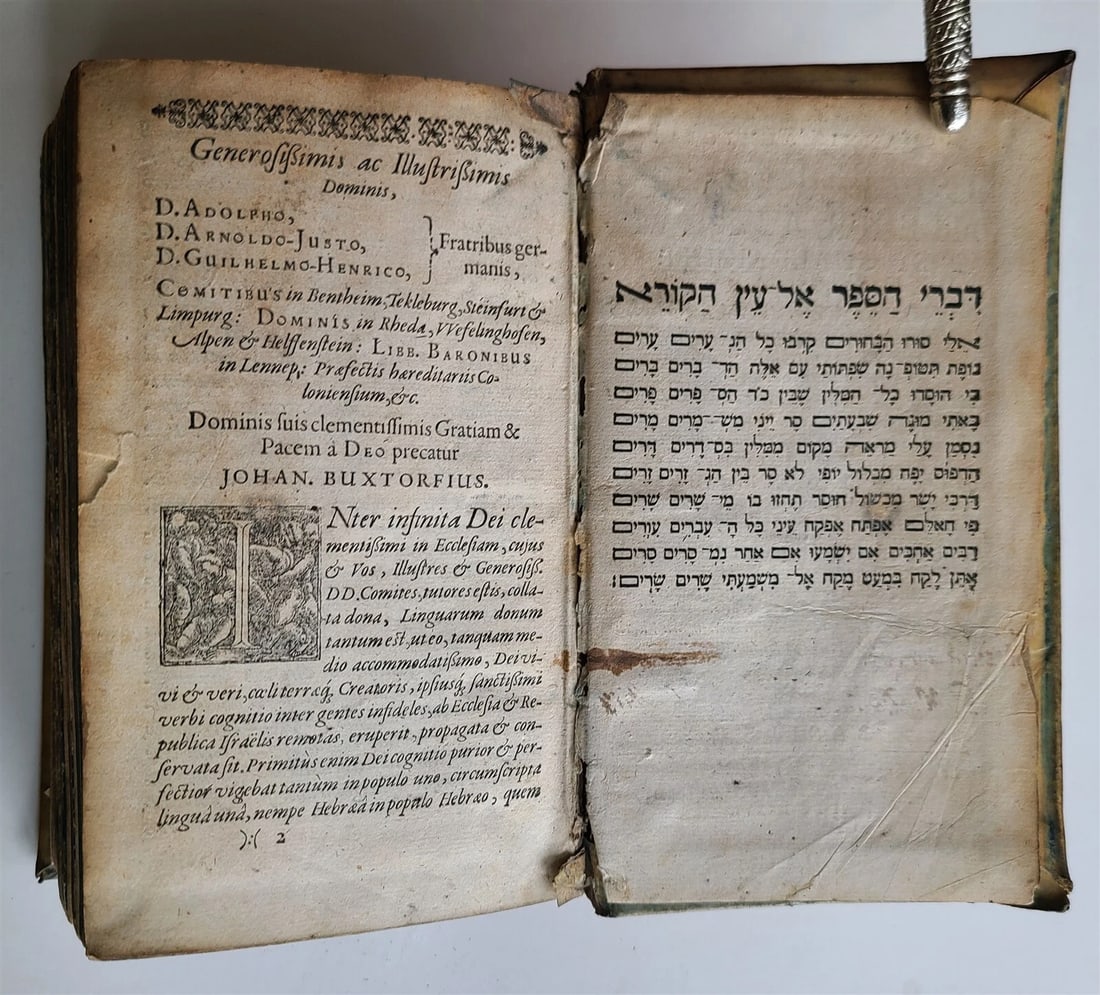 Generosißimis ac Illustrißimis
Dominis,
D. ADOLPHO,
D. ARNOLDO-JUSTO,
D. GUILHELMO-HENRICO,
Fratribus ger-
manis,
COMITIBUS in Bentheim, Tekleburg, Steinfurt &
Limpurg: DOMINIS in Rheda, VVefelinghofen,
Alpen & Helffenstein: LIBB. BARONIBUS
in Lennep,: Præfectis hæreditariis Co-
loniensium, &c.
Dominis suis clementissimis Gratiam &
Pacem â DEO precatur
JOHAN. BUXTORFIUS.
INter infinita Dei cle-
mentißimi in Ecclesiam, cujus
& Vos, Illustres & Generosiss.
DD. Comites, tutores estis, colla-
ta dona, Linguarum donum
tantum est, ut eo, tanquam me-
dio accommodatißimo, Dei vi-
vi & veri, cœli terræq́, Creatoris, ipsiusq́, sanctißimi
verbi cognitio inter gentes infideles, ab Ecclesia & Re-
publica Israëlis remotas, eruperit, propagata & con-
servata sit. Primitùs enim Dei cognitio purior & per-
fectior vigebat tantùm in populo uno, circumscripta
linguâ unâ, nempe Hebræâ in populo Hebræo, quem
):( 2
דִּבְרֵי הַסֵּפֶר אֶל־עֵין הַקּוֹרֵא
אלי סורו הבחורים קרבו כל הנ־ ערים ערים
נופת תטופ־נה שפתותי עם אלה הד־ ברים ברים
כי הוסרו כל־ המלין שבין כ'ד הס־ פרים פרים
באתי מוגרה שבעתים סר ייני מש־ מרים מרים
נסמן עלי מראה מקום ממלין בס־ דרים דרים
הדפוס יפה מכלול יופי לא סר בין הג־ זרים זרים
דרכי ישר מכשול חוסר תחזו בו מי־ שרים שרים
פי חאלם אפתח אפקח עיני כל ה־ עברים עורים
רבים אהבים אם ישמעו אם אחר נמ־ סרים סרים
אתן לקח במעט מקח אל־ משמעתי שרים שרים: